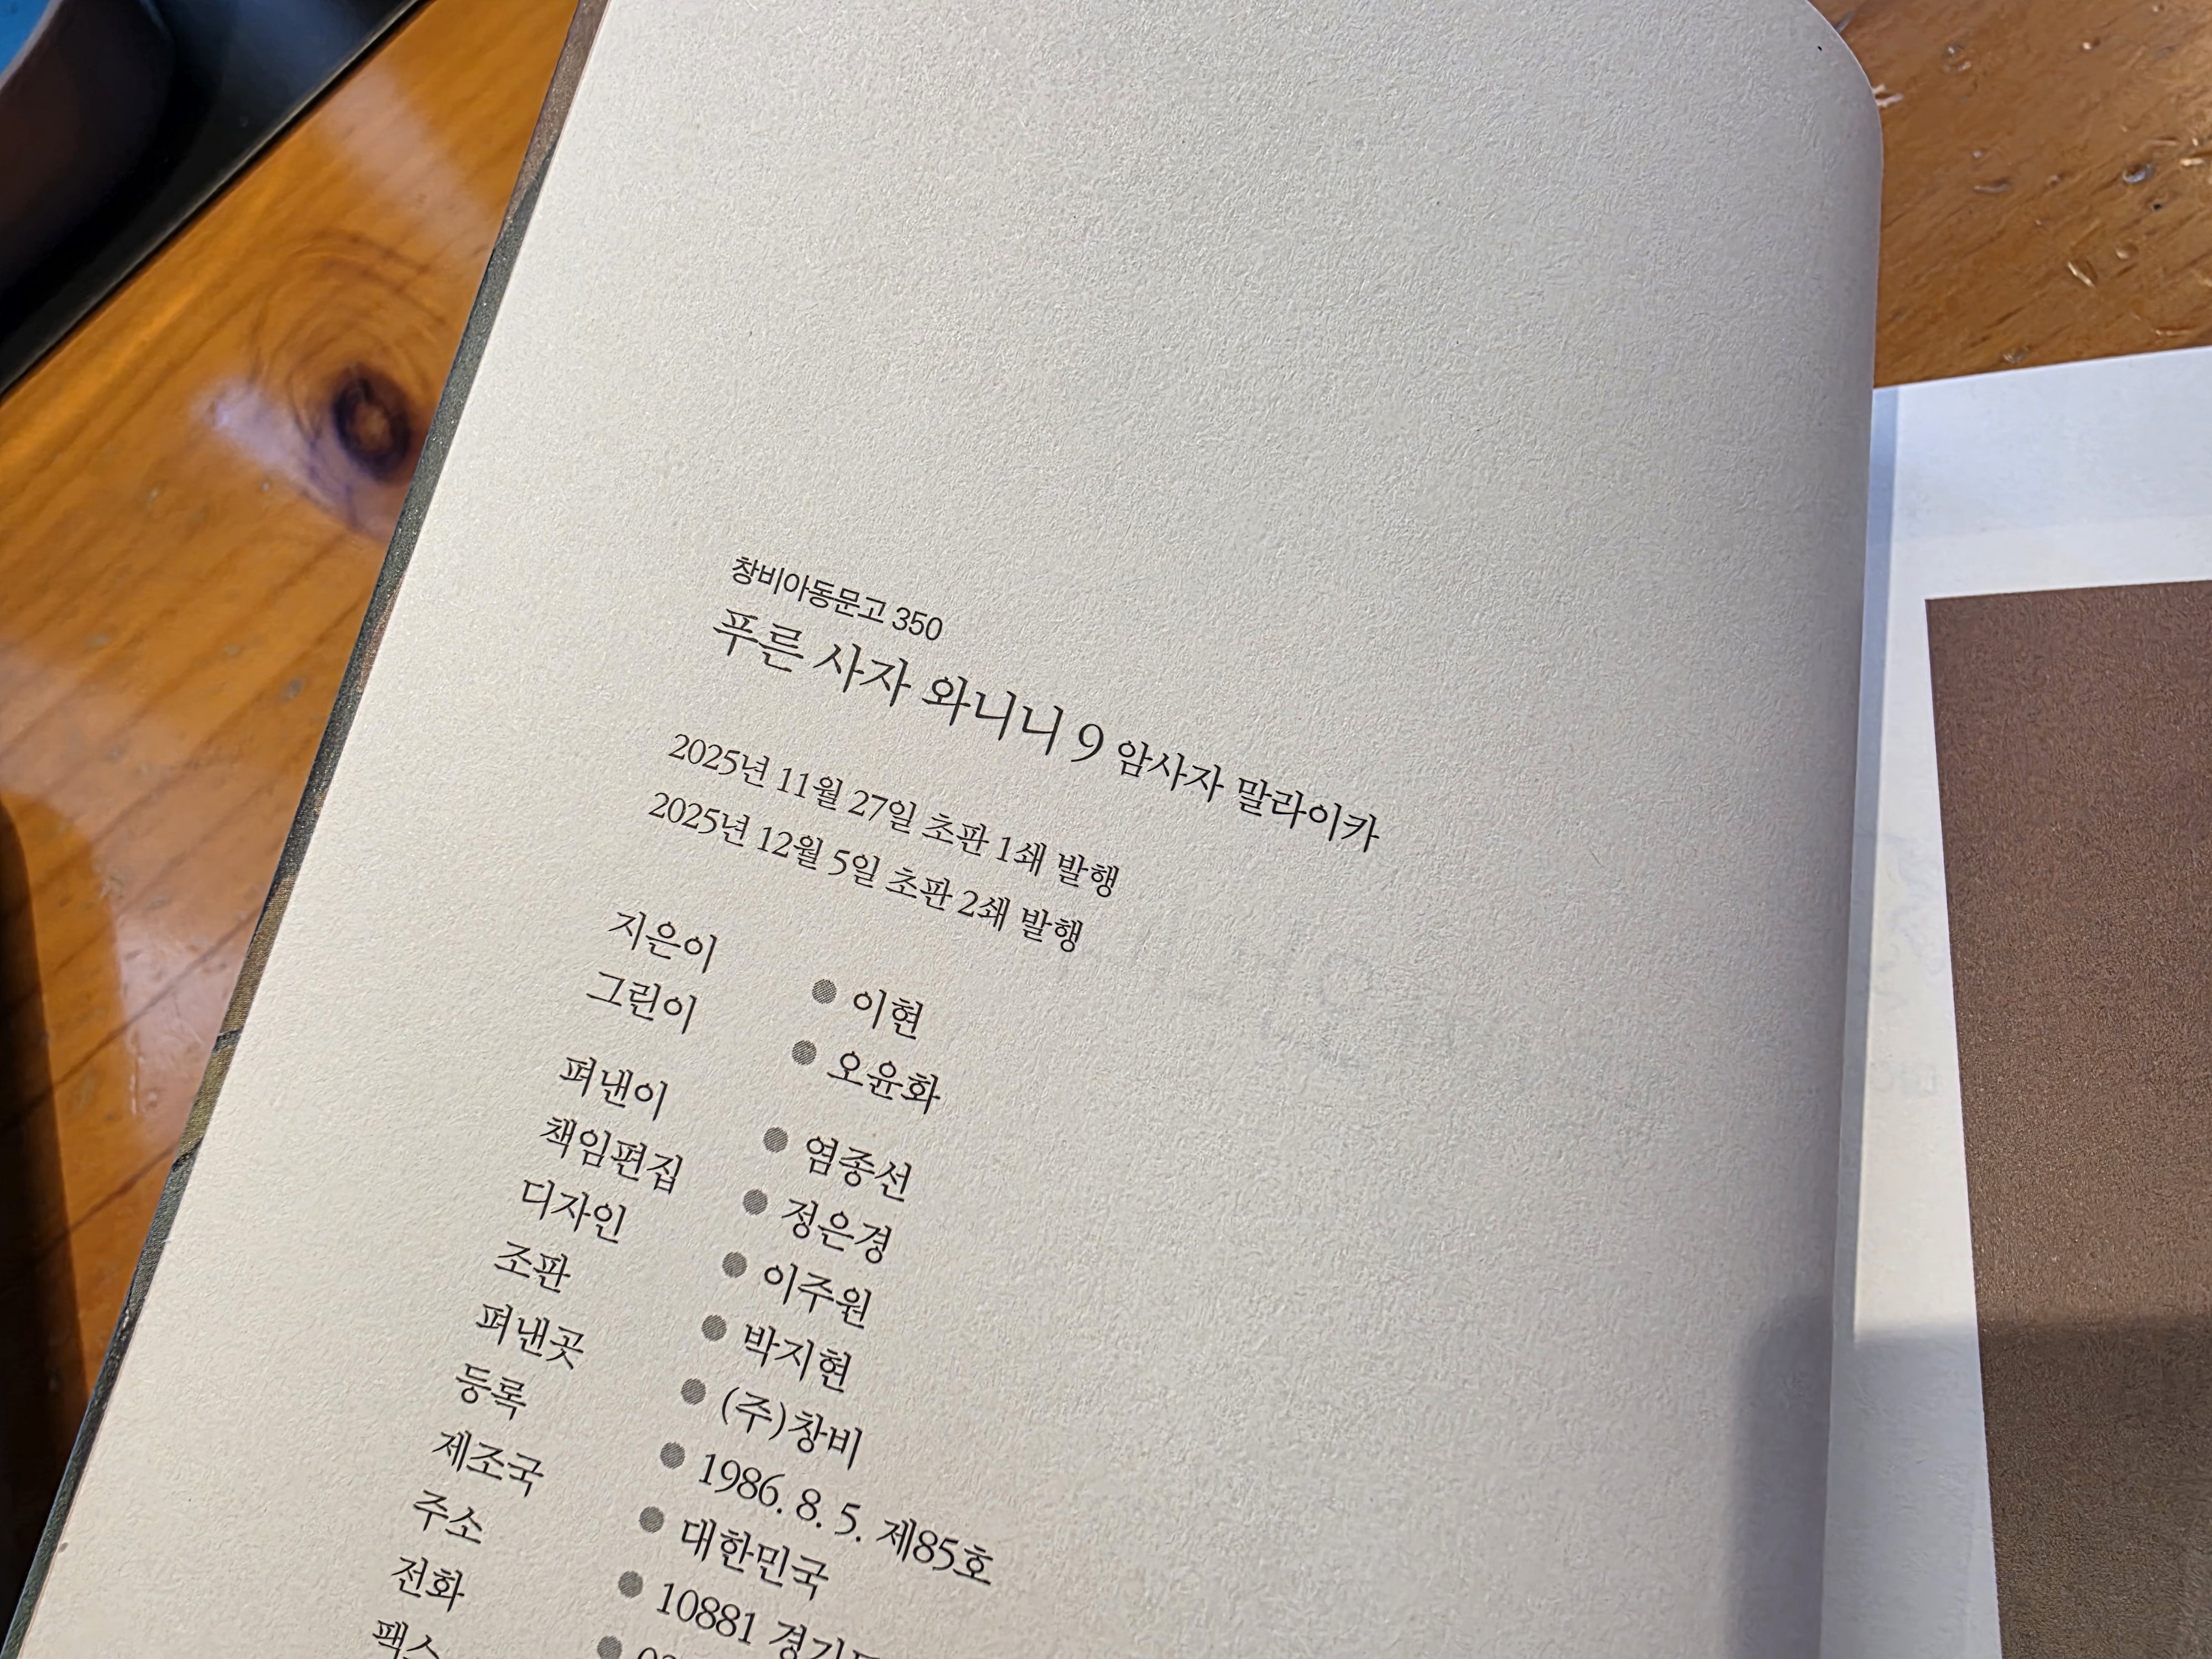 창비아동문고 350
푸른 사자 와니니 9 암사자 말라이카
2025년 11월 27일 초판 1쇄 발행
2025년 12월 5일 초판 2쇄 발행
지은이 ● 이현
그린이 ● 오윤화
펴낸이 ● 염종선
책임편집 ● 정은경
디자인 ● 이주원
조판 ● 박지현
펴낸곳 ● (주)창비
등록 ● 1986. 8. 5. 제85호
제조국 ● 대한민국
주소 ● 10881
전화 ●
팩스